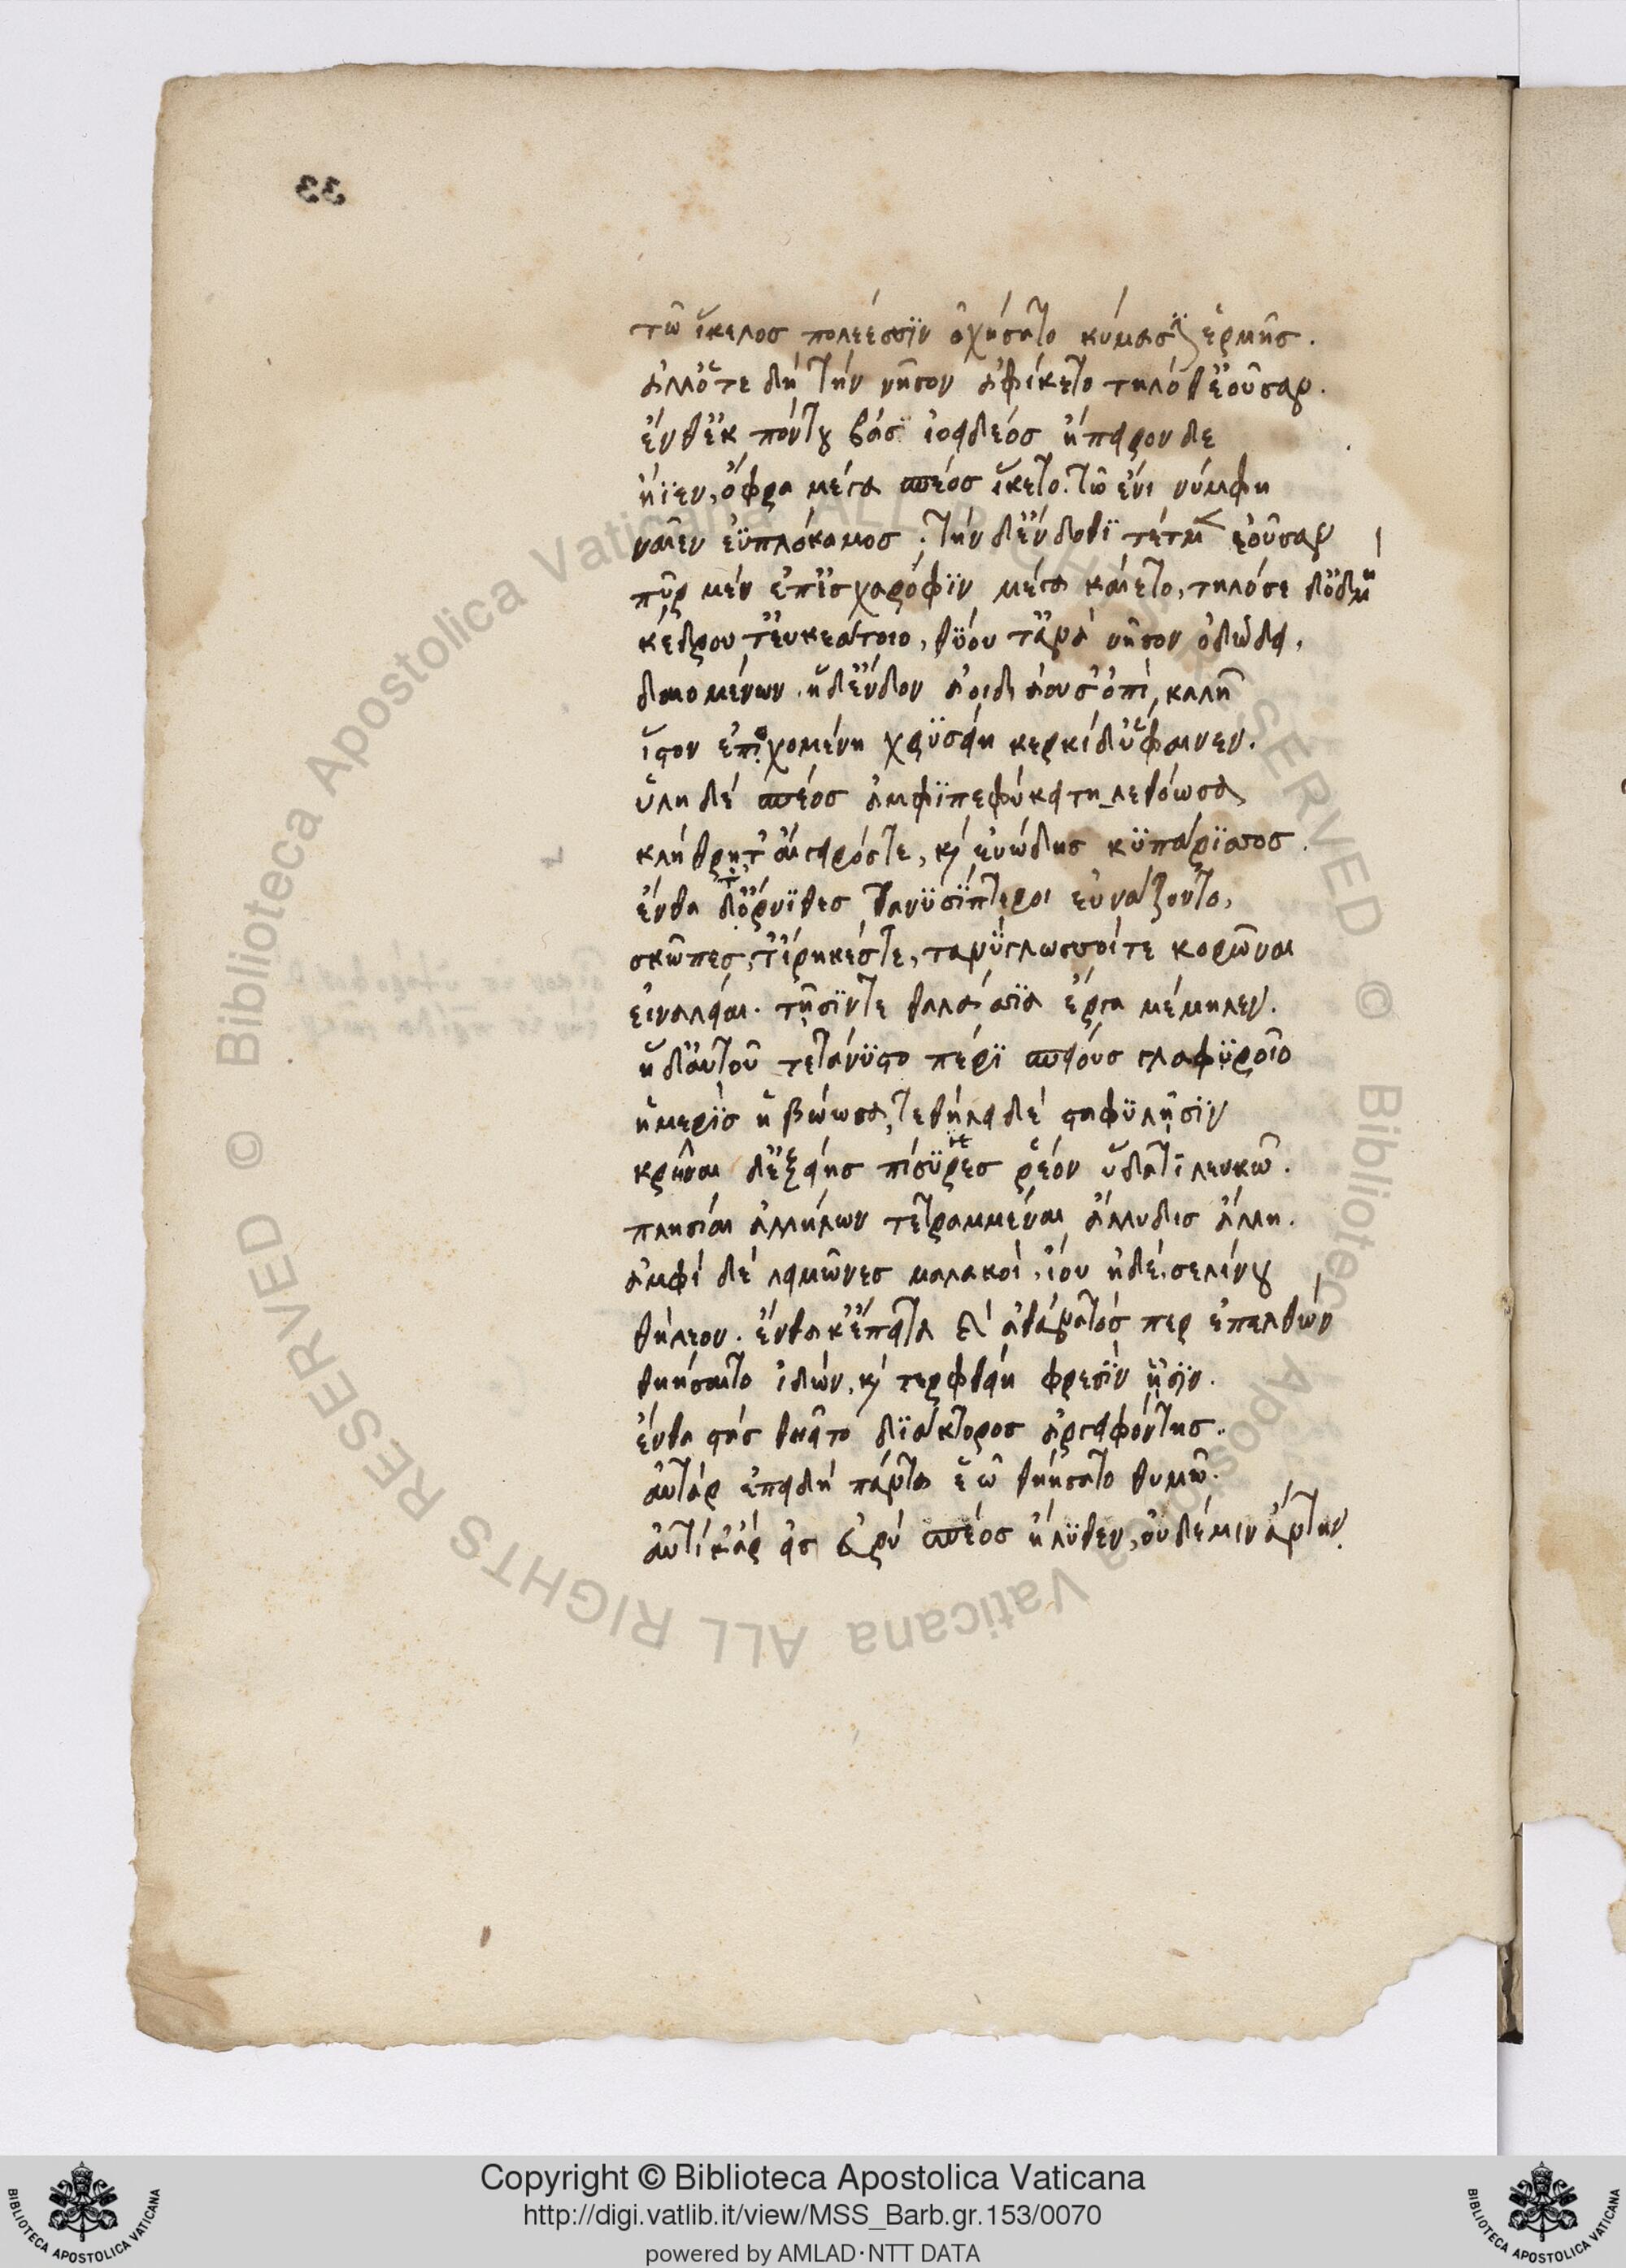 33
τῶ ἴκελος πολέεσσϊν ὀχήσατο κύμασϊ ἑρμῆς.
ἀλλ' ὅτε δὴ τὴν νῆσον ἀφίκετο τηλόθ' ἐοῦσαν.
ἔνθ' ἐκ πόντου βὰσ ἰοειδέος ἤπειρον δε
ἤϊεν, ὄφρα μέγα σπέος ἵκετο. τῶ ἔνι νύμφη
ναῖεν ἐϋπλόκαμος. τὴν δ' ἔνδοθϊ τέτμεν ἐοῦσαν
πῦρ μὲν ἐπ' ἐσχαρόφϊν μέγα καίετο, τηλόσε δ' ὀδμὴ
κέδρου τ' εὐκεάτοιο, θύου τ' ἀνὰ νῆσον ὀδώδει,
δαιομένων. ἡ δ' ἔνδον ἀοιδιάουσ' ὀπὶ καλῆ
ἱστὸν ἐποιχομένη χρϋσείη κερκίδ' ὕφαινεν.
ὕλη δὲ σπέος ἀμφϊπεφύκει τηλεθόωσα
κλήθρη τ' αἴγειρός τε, καὶ εὐώδης κϋπάρϊσσος.
ἔνθα δ' ὄρνϊθες τανϋσίπτεροι εὐνάζοντο,
σκῶπες τ' ἴρηκές τε, τανύγλωσσοί τε κορῶναι
εἰνάλιαι. τῆσίν τε θαλάσσϊα ἔργα μέμηλεν.
ἡ δ' αὐτοῦ τετάνϋστο πέρϊ σπείους γλαφϋροῖο
ἡμερὶς ἡβώωσα, τεθήλει δὲ σταφϋλῆσϊν
κρῆναι δ' ἑξείης πίσϋρες ῥέον ὕδατϊ λευκῶ.
πλησίαι ἀλλήλων τετραμμέναι ἄλλυδις ἄλλη.
ἀμφὶ δὲ λειμῶνες μαλακοὶ, ἴου ἠδὲ σελίνου
θήλεον. ἔνθα κ' ἔπειτα καὶ ἀθάνατός περ ἐπελθὼν
θηήσαιτο ἰδὼν, καὶ τερφθείη φρεσὶν ᾗσϊν.
ἔνθα στὰς θηεῖτο δϊάκτορος ἀργειφόντης.
αὐτὰρ ἐπειδὴ πάντα ἑῶ θηήσατο θυμῶ.
αὐτίκ' ἄρ εἰς εὐρὺ σπέος ἤλϋθεν, οὐδέ μιν ἄντην.
Copyright © Biblioteca Apostolica Vaticana
http://digi.vatlib.it/view/MSS_Barb.gr.153/0070
powered by AMLAD·NTT DATA